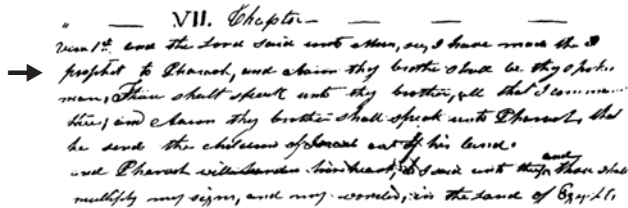 " — — VII. Chapter — — — —
Vers 1st and the Lord said unto Moses, see, I have made the a
prophet to Pharaoh, and Aaron thy brother shall be thy spokes
man, Thou shalt speak unto thy brother, all that I comma
thee; and Aaron thy brother shall speak unto Pharaoh, that
he send the children of Israel out of his land.
and Pharaoh will harden his heart, as I said unto thee, and thou shalt
multiply my signs, and my wonders, in the land of Egypt.